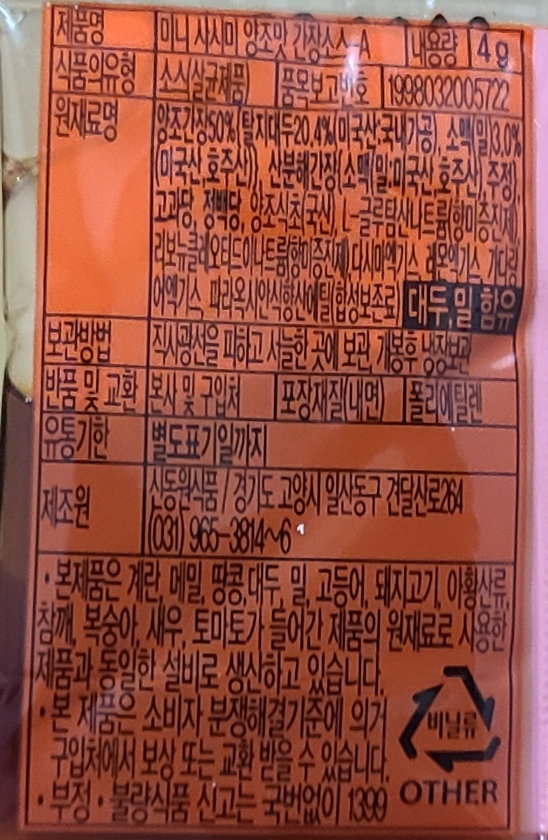 제품명 미니 사시미 양조맛 간장소스-A 내용량 4g
식품의유형 소스살균제품 품목보고번호 1998032005722
원재료명 양조간장50%(탈지대두20.4%(미국산:국내가공), 소맥(밀)3.0%
(미국산,호주산)), 산분해간장(소맥(밀:미국산,호주산), 주정),
고과당, 정백당, 양조식초(국산), L-글루탐산나트륨(향미증진제),
리보뉴클레오티드이나트륨(향미증진제),다시마엑기스, 가다랑
어엑기스, 파라옥시안식향산에틸(합성보존료) 대두,밀 함유
보관방법 직사광선을 피하고 서늘한 곳에 보관, 개봉후 냉장보관
반품 및 교환 본사 및 구입처 포장재질(내면) 폴리에틸렌
유통기한 별도표기일까지
제조원 신동원식품 / 경기도 고양시 일산동구 견달산로264
(031) 965-3814~6
· 본제품은 계란, 메밀, 땅콩,대두, 밀, 고등어, 돼지고기, 아황산류,
참깨, 복숭아, 새우, 토마토가 들어간 제품의 원재료로 사용한
제품과 동일한 설비로 생산하고 있습니다.
· 본 제품은 소비자 분쟁해결기준에 의거
구입처에서 보상 또는 교환 받을 수 있습니다.
· 부정 · 불량식품 신고는 국번없이 1399
비닐류
OTHER